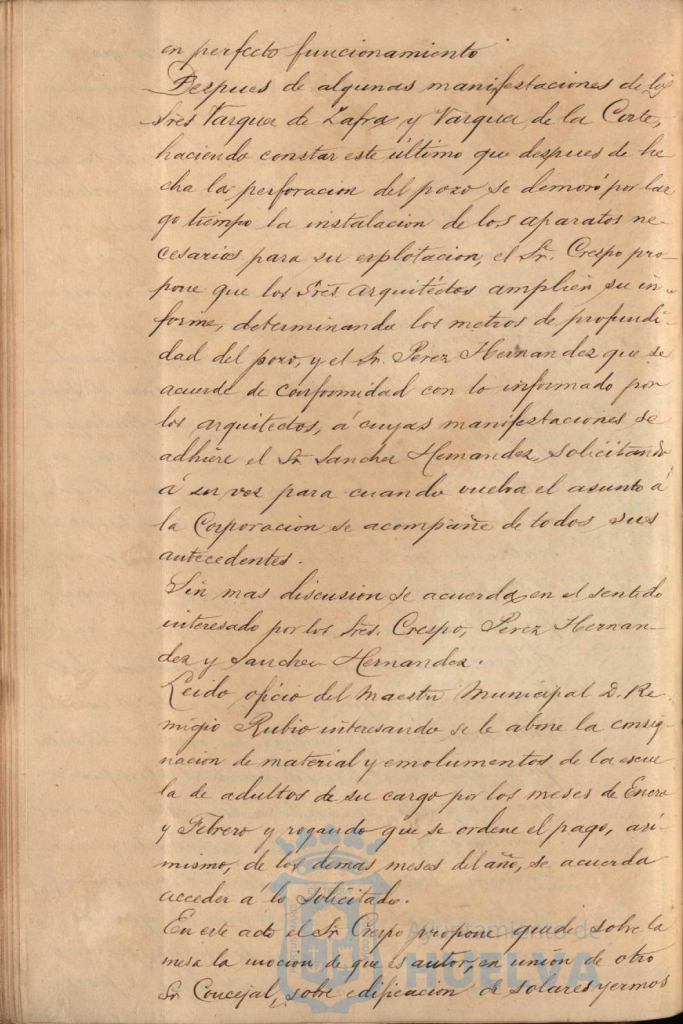 en perfecto funcionamiento
Despues de algunas manifestaciones de los
Sres Vazquez de Zafra y Vazquez de la Corte,
haciendo constar este último que despues de he
cha la perforacion del pozo se demoró por lar
go tiempo la instalacion de los aparatos ne-
cesarios para su esplotacion, el Sr. Crespo pro-
pone que los Sres arquitéctos amplien su in-
forme, determinando los metros de profundi-
dad del pozo, y el Sr. Perez Hernandez que se
acuerde de conformidad con lo informado por
los arquitectos, á cuyas manifestaciones se
adhiere el Sr. Sanchez Hernandez, solicitando
á su vez para cuando vuelva el asunto á
la Corporacion se acompañe de todos sus
antecedentes.
Sin mas discusion se acuerda en el sentido
interesado por los Sres. Crespo, Perez Hernan-
dez y Sanchez Hernandez.
Leido oficio del Maestro Municipal D. Re-
migio Rubio interesando se le abone la consig-
nacion de material y emolumentos de la escue
la de adultos de su cargo por los meses de Enero
y Febrero y rogando que se ordene el pago, asi-
mismo, de los demas meses del año, se acuerda
acceder á lo solicitado.
En este acto el Sr Crespo propone quede sobre la
mesa la mocion de que es autor, en unión de otro
Sr Concejal, sobre edificacion de solares yermos
Ayuntamiento de
HUELVA